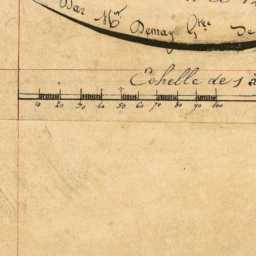 Par Mr Demay Gtre De
Echelle de 5 à
10 20 30 40 50 60 70 80 90 100